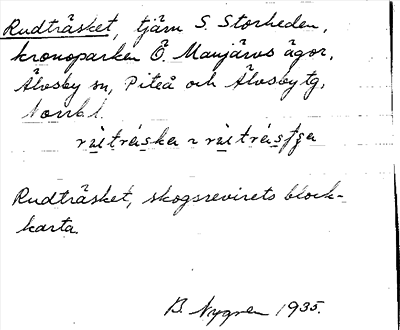 Rudträsket, tjärn S. Storheden,
kronoparken Ö. Manjärvs ägor,
Älvsby sn, Piteå och Älvsby tg,
Norrb. l.
Rudträsket, skogsrevirets block-
karta.
B. Nygren 1935.